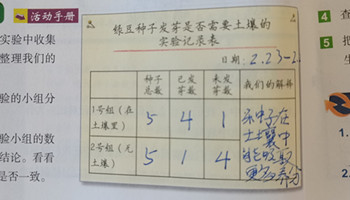 活动手册
实验中收集
整理我们的
验的小组分
小组的数
结论。看看
是否一致。
绿豆种子发芽是否需要土壤的
实验记录表
日期：2.23-2
种子总数 已发芽 未发芽 我们的解释
1号组（在土壤里） 5 4 1
2号组（无土壤） 5 1 4
种子在
土壤中
能吸取
养分
4 查
5 把